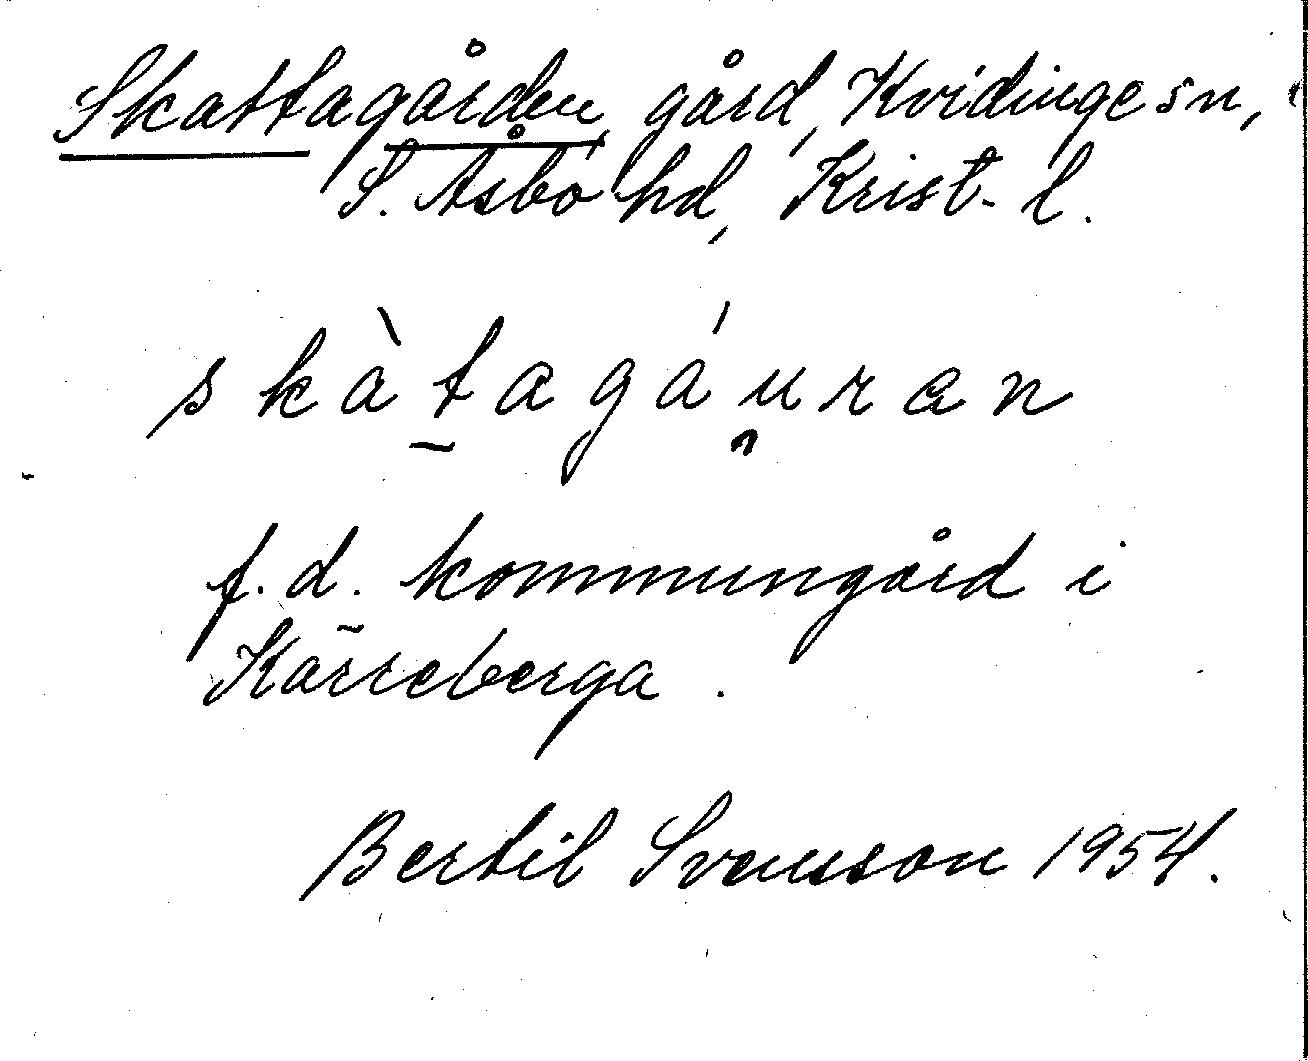 Skattagården, gård, Kvidinge sn,
S. Åsbo hd, Krist. l.
skàt̰agáu̯ran
f.d. kommungård i
Kärreberga.
Bertil Svensson 1954.